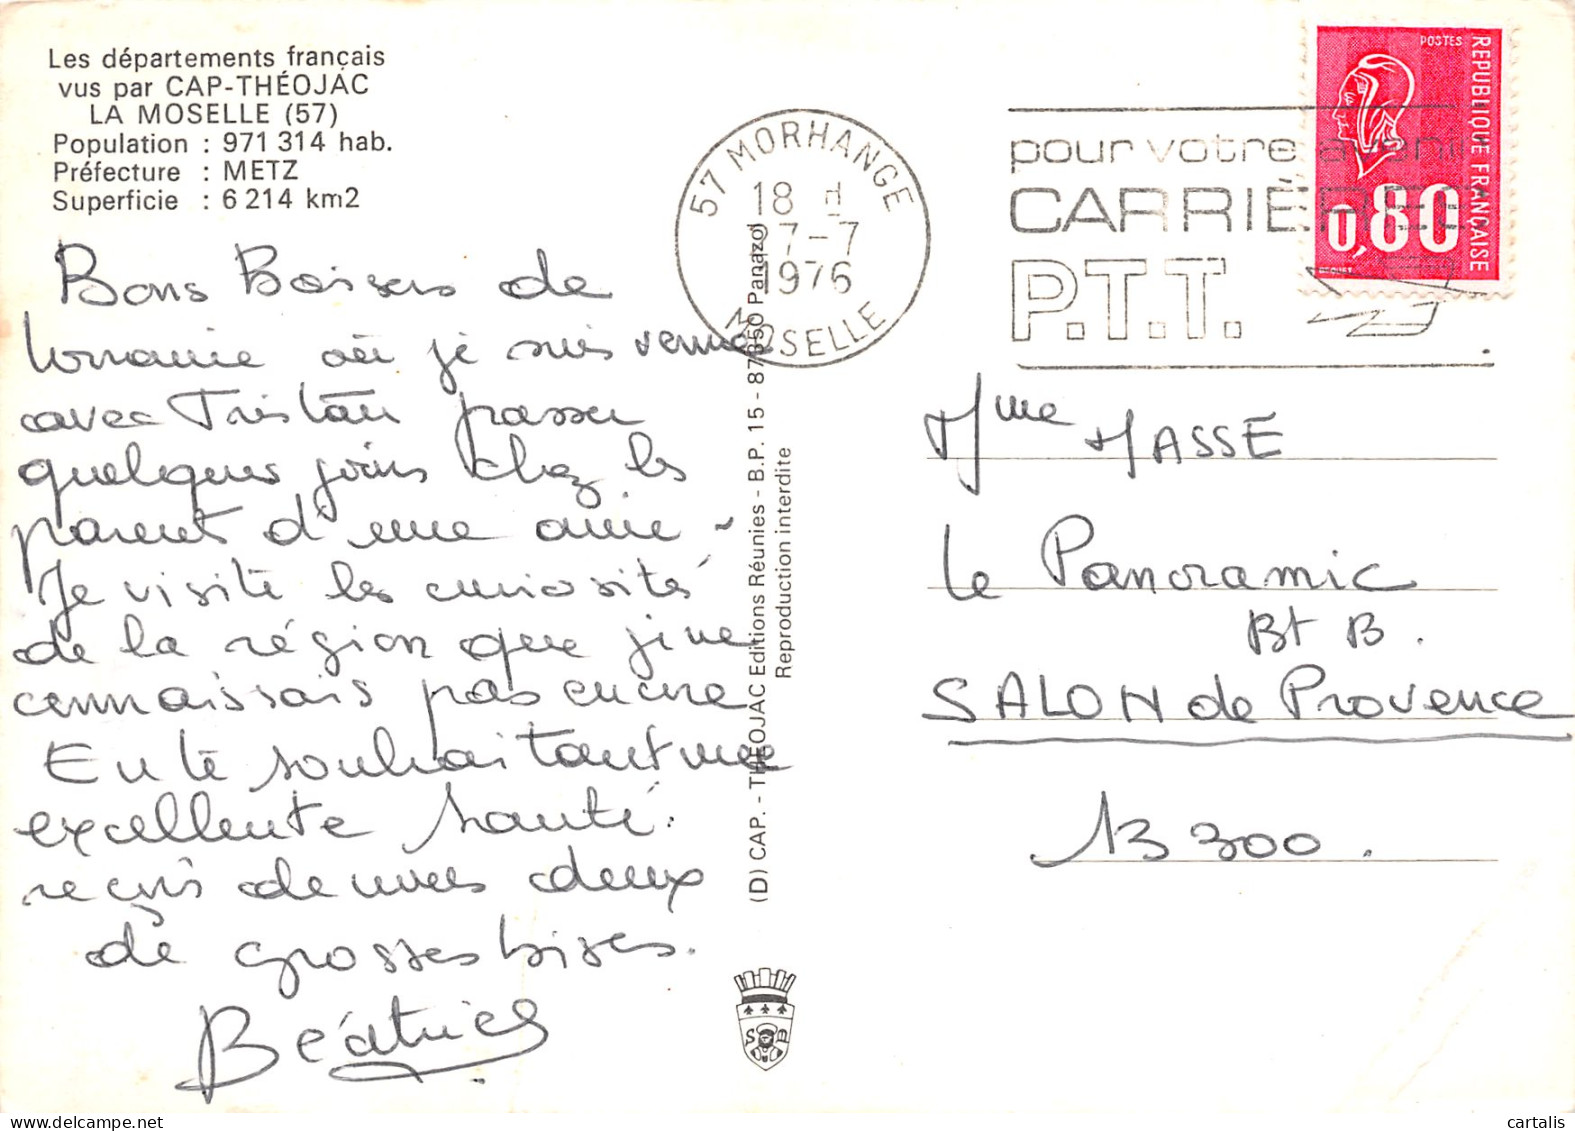 Les départements français
vus par CAP-THÉOJAC
LA MOSELLE (57)
Population : 971 314 hab.
Préfecture : METZ
Superficie : 6 214 km2
Bons Baisers de
Lorraine où je suis venue
avec Tristan passer
quelques jours chez les
parent d'une amie -
Je visite les curiosités
de la région que je ne
connaissais pas encore
En te souhaitant une
excellente santé.
reçois de nous deux
de grosses bises.
Béatrice
(D) CAP. - THÉOJAC Editions Réunies - B.P. 15 - 87350 Panazol
Reproduction interdite
57 MORHANGE
18 H
7-7
1976
MOSELLE
pour votre avenir
CARRIÈRES
P.T.T.
POSTES
REPUBLIQUE FRANÇAISE
0,80
BEQUET
Mme MASSE
Le Panoramic
Bt B.
SALON de Provence
13 300.
cartalis